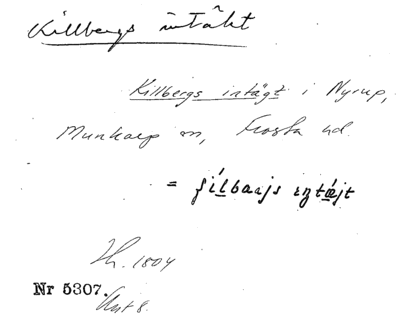 Killbergs intäkt
Killbergs intägt i Nyrup,
Munkarp sn, Frosta hd.
= ʃílbarjs ɩntǽjt
Th. 1804
Nr 5307. Ant 8.